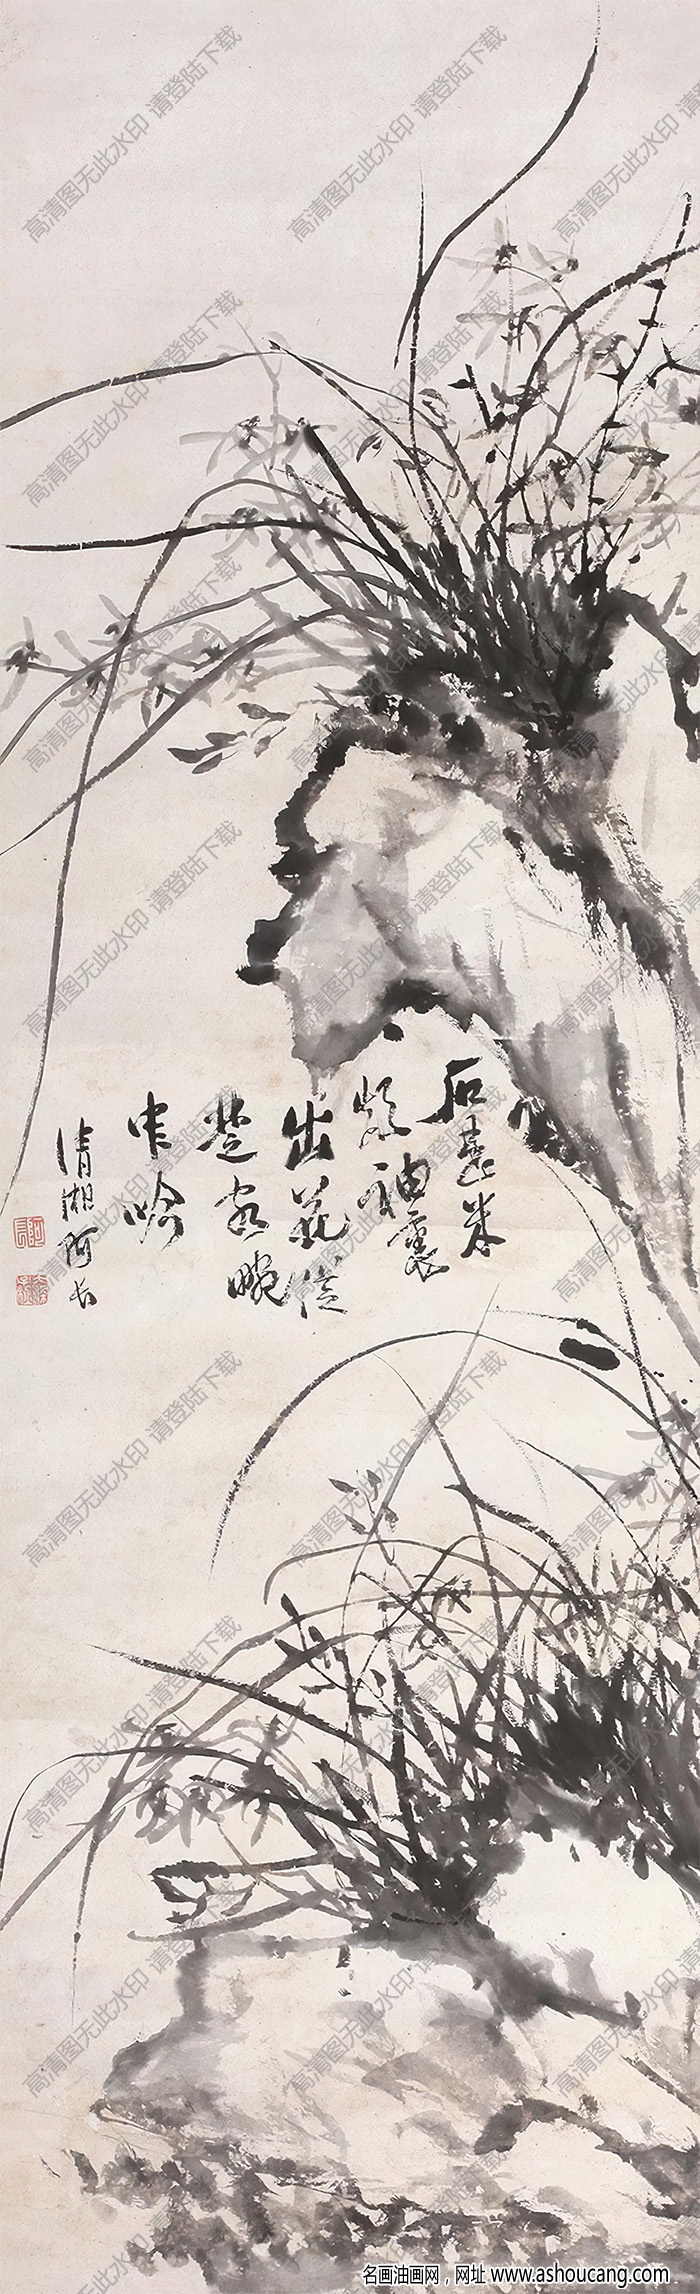 石
紫袖裹
出花
楚客畹
中吟
清湘阿长
阿長
高清图无此水印 请登陆下载
名画油画网，网址 www.ashoucang.com